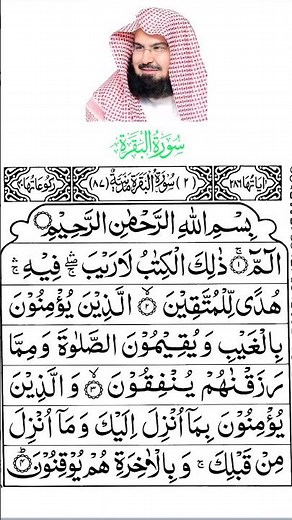 سُوْرَةُ الْبَقَرَةِ
اٰيَاتُهَا ٢٨٦ (٢) سُوْرَةُ الْبَقَرَةِ مَدَنِيَّةٌ (٨٧) رُكُوْعَاتُهَا ٤٠
بِسْمِ اللّٰهِ الرَّحْمٰنِ الرَّحِيْمِ
الٓمّٓ ۚ ذٰلِكَ الْكِتٰبُ لَا رَيْبَ ۛ فِيْهِ ۛ
هُدًى لِّلْمُتَّقِيْنَ ۙ﴿٢﴾ الَّذِيْنَ يُؤْمِنُوْنَ
بِالْغَيْبِ وَيُقِيْمُوْنَ الصَّلٰوةَ وَمِمَّا
رَزَقْنٰهُمْ يُنْفِقُوْنَ ۙ﴿٣﴾ وَالَّذِيْنَ
يُؤْمِنُوْنَ بِمَآ اُنْزِلَ اِلَيْكَ وَمَآ اُنْزِلَ
مِنْ قَبْلِكَ ۚ وَبِالْاٰخِرَةِ هُمْ يُوْقِنُوْنَ ؕ﴿٤﴾